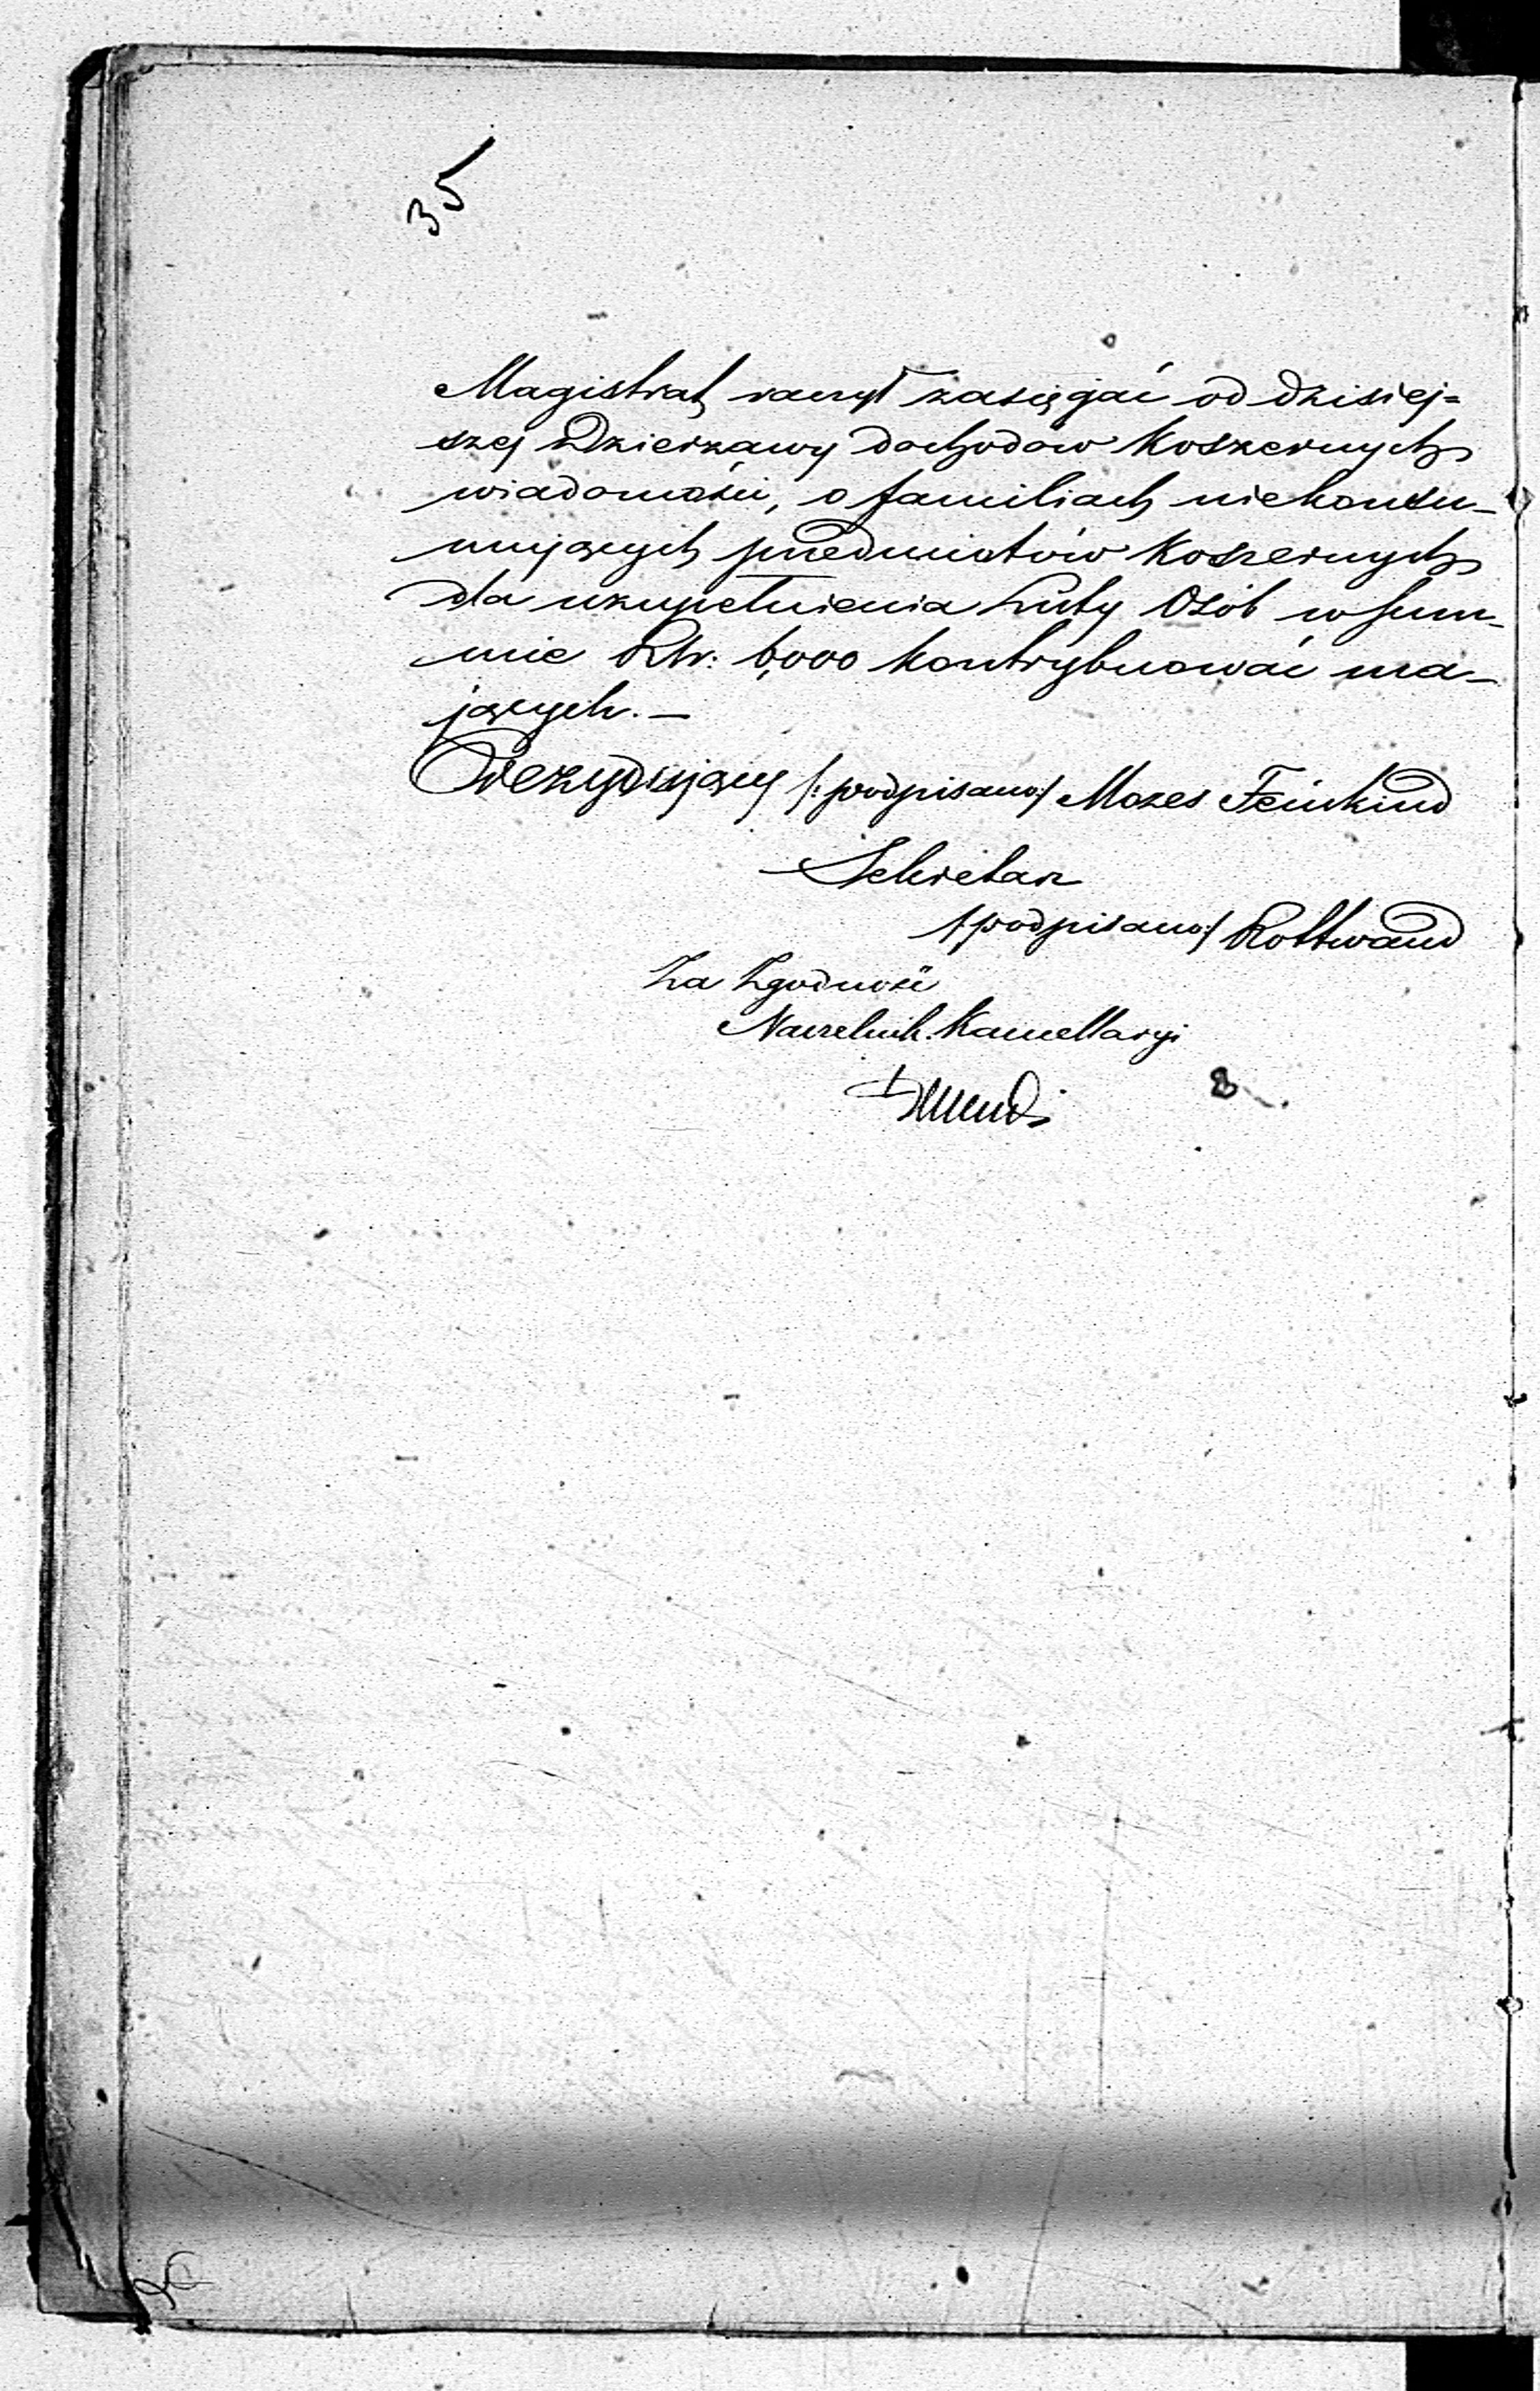 35
Magistrat raczył zasięgać od dzisiej=
szej Dzierzawy dochodow Koszernych
wiadomości, o familiach niekonsu-
mujących przedmiotów Koszernych
dla uzupełnienia Liczby Osób w sum-
mie Rbr: 6,000 kontrybuować ma-
jących. —
Prezydujący /: podpisano:/ Mozes Feinkind
Sekretarz
/: podpisano:/ Rottwand
Za Zgodność
Naczelnik Kancellaryi